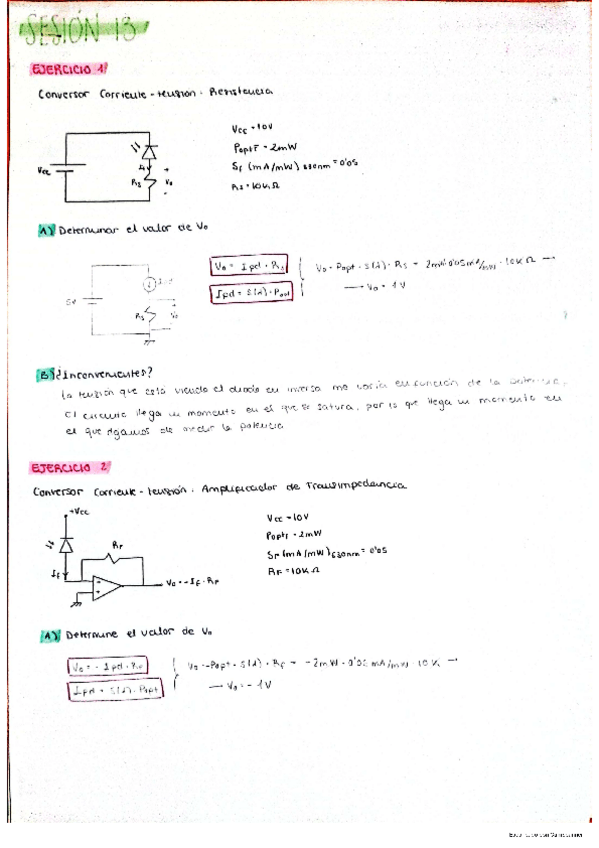 SESIÓN 13
EJERCICIO 1
Conversor Corriente-tensión. Resistencia
Vcc = 10V
Popt = 2mW
Sr (mA/mW) 630nm = 0'05
Rs = 10KΩ
Vcc
Rs
Vo
A) Determinar el valor de Vo
Vo = Ipd · Rs
Ipd = S(λ) · Popt
Vo = Popt · S(λ) · Rs = 2mW · 0'05 mA/mW · 10KΩ →
→ Vo = 1V
Rs
Vo
B) ¿Inconvenientes?
La tensión que está viendo el diodo en inversa me varía en función de la potencia,
el circuito llega un momento en el que se satura, por lo que llega un momento en
el que dejamos de medir la potencia
EJERCICIO 2
Conversor Corriente-tensión. Amplificador de Transimpedancia
+Vcc
RF
IF
Vo = -IF · RF
Vcc = 10V
Popt = 2mW
Sr (mA/mW) 630nm = 0'05
RF = 10KΩ
A) Determine el valor de Vo
Vo = - Ipd · RF
Ipd = S(λ) · Popt
Vo = -Popt · S(λ) · RF = -2mW · 0'05 mA/mW · 10K →
→ Vo = -1V